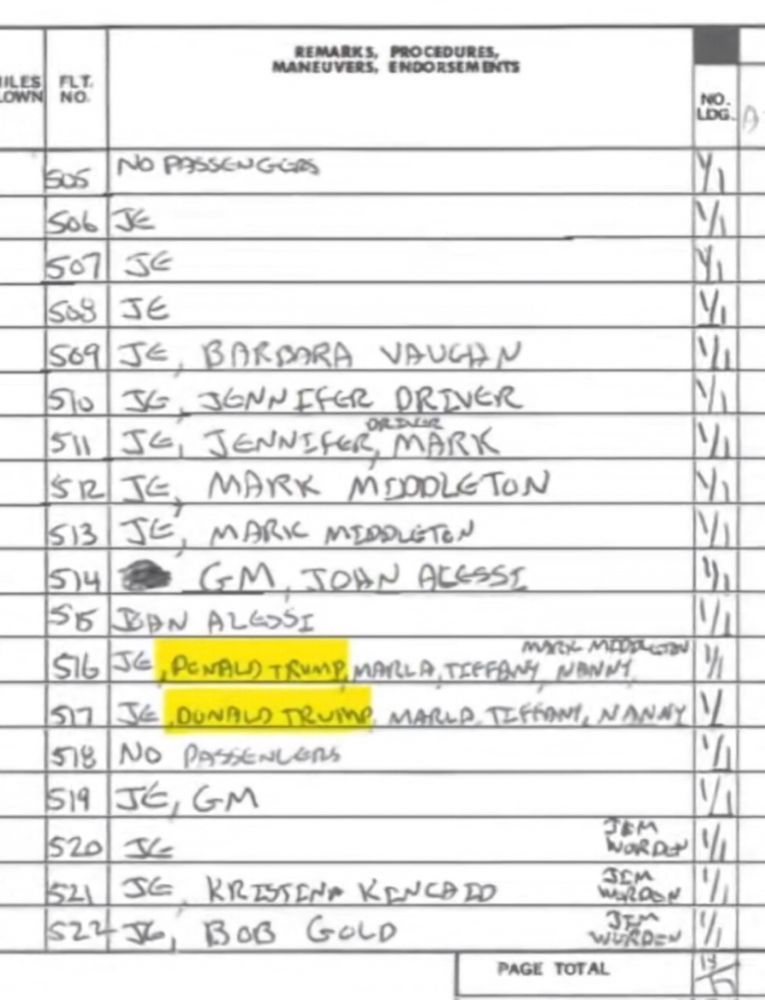 REMARKS, PROCEDURES,
MANEUVERS, ENDORSEMENTS
ILES FLT. NO.
OWN NO. LDG.
505 NO PASSENGERS 1/1
506 JE 1/1
507 JE 1/1
508 JE 1/1
509 JE, BARBARA VAUGHN 1/1
510 JE, JENNIFER DRIVER 1/1
DRIVER
511 JE, JENNIFER, MARK 1/1
512 JE, MARK MIDDLETON 1/1
513 JE, MARK MIDDLETON 1/1
514 GM, JOHN ALESSI 1/1
515 JOHN ALESSI 1/1
MARK MIDDLETON
516 JE, DONALD TRUMP, MARLA, TIFFANY, NANNY 1/1
517 JE, DONALD TRUMP, MARLA, TIFFANY, NANNY 1/
518 NO PASSENGERS 1/1
519 JE, GM 1/1
JIM
520 JE WORDEN 1/1
JIM
521 JE, KRISTINA KINCAID WORDEN 1/1
JIM
522 JE, BOB GOLD WURDEN 1/1
PAGE TOTAL